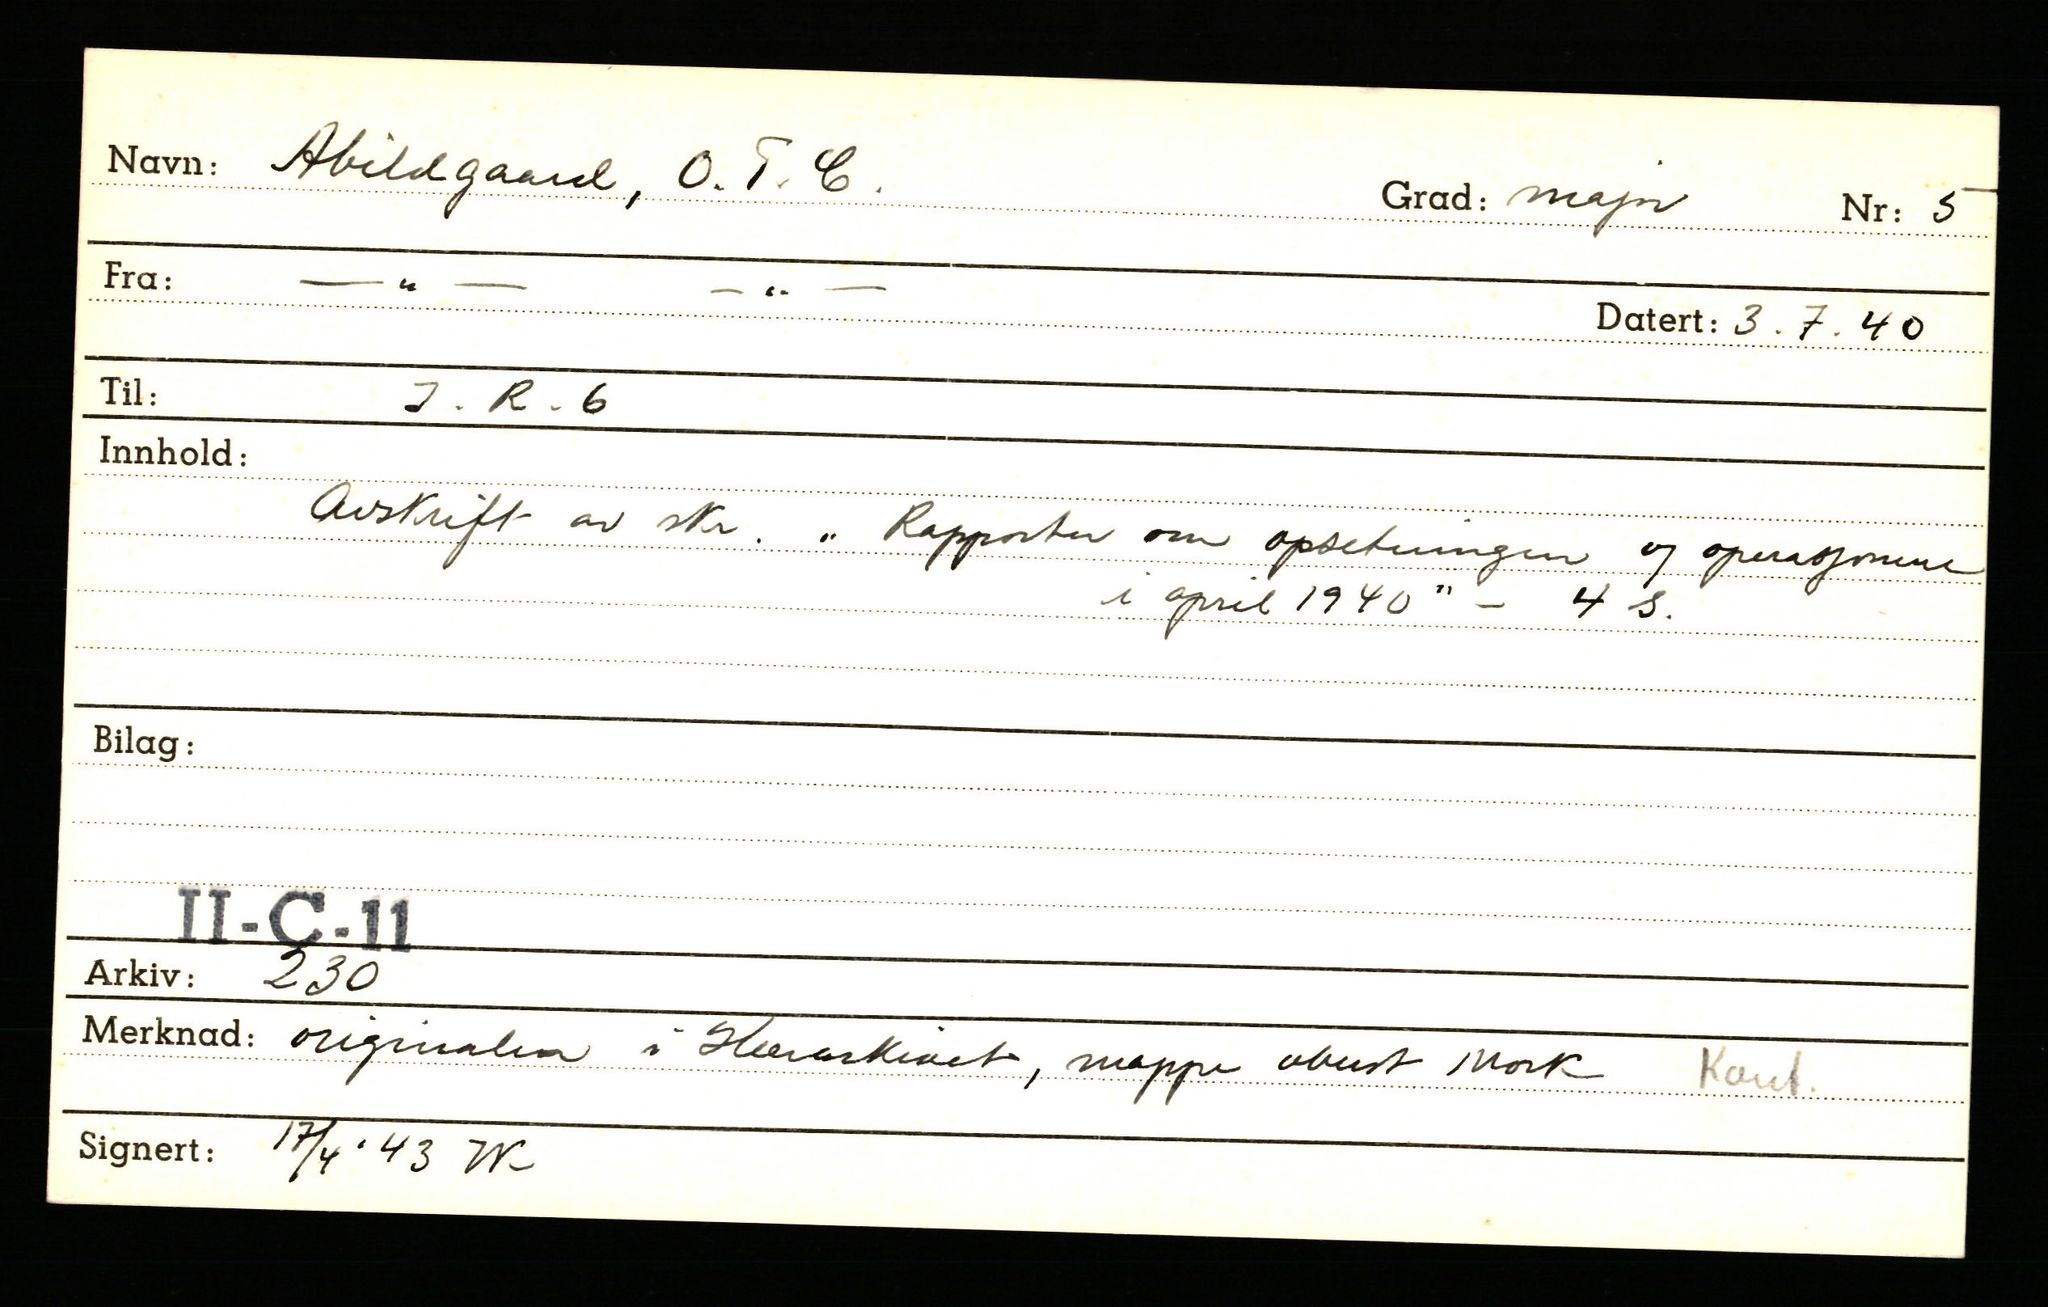 Navn: Abildgaard, O. T. C. Grad: major Nr: 5
Fra: — " — — " — Datert: 3.7.40
Til: I. R. 6
Innhold:
Avskrift av skr. „ Rapporter om opsetningen og operasjonene
i april 1940" - 4 s.
Bilag:
II-C-11
Arkiv: 230
Merknad: originalen i Hærarkivet, mappe oberst Mork
Signert: 17/4.43